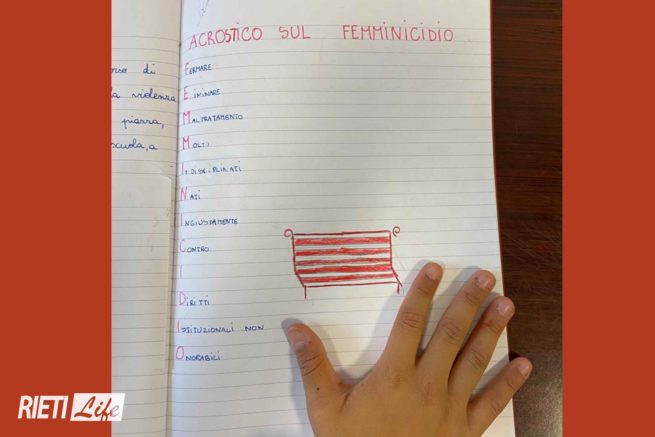 orso di
la violenza
piazza,
scuola, a
ACROSTICO SUL FEMMINICIDIO
FERMARE
ELIMINARE
MALTRATAMENTO
MOLTI
INDISCIPLINATI
NATI
INGIUSTAMENTE
CONTRO
I
DIRITTI
ISTITUZIONALI NON
ONORABILI
RIETI Life